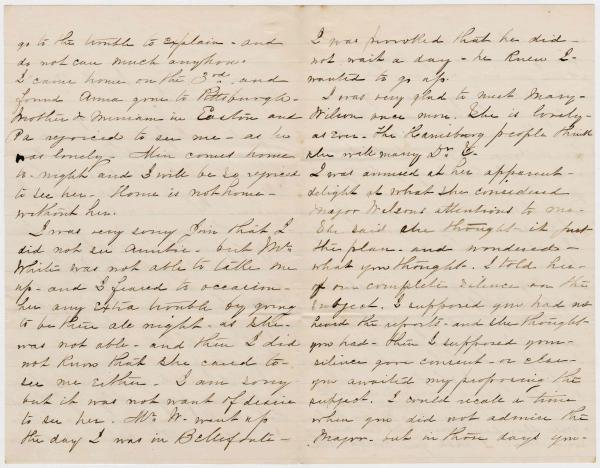 go to the trouble to explain - and
do not care much anyhow.
I came home on the 3rd and
found Anna gone to Pittsburgh -
Mother & Miriam in Easton and
Pa rejoiced to see me - as he
was lonely - Mim comes home
to-night and I will be so rejoiced
to see her. Home is not home -
without her.
I was very sorry that I
did not see Auntie - but Mrs
White was not able to take me
up - and I feared to occasion -
her any extra trouble by going
to be there all night - as she -
was not able - and then I did
not know that she cared to -
see me either. I am sorry
but it was not want of desire
to see her. Mr W. went up
the day I was in Bellefonte -
I was provoked that he did -
not wait a day - he knew I -
wanted to go up.
I was very glad to meet Mary -
Wilson once more. She is lovely -
as ever - the people think
she will marry Dr.
I was amused at her apparent -
delight at what she considered
Major Wilsons attentions to me -
She said she thought it just
the plan - and wondered -
what you thought. I told her -
of our complete silence on the
subject. I supposed you had not
heard the reports - and she thought -
you had - then I supposed your -
silence gave consent - or else -
you awaited my proposing the
subject. I could recate a time
when you did not admire the
Major - but in those days you -